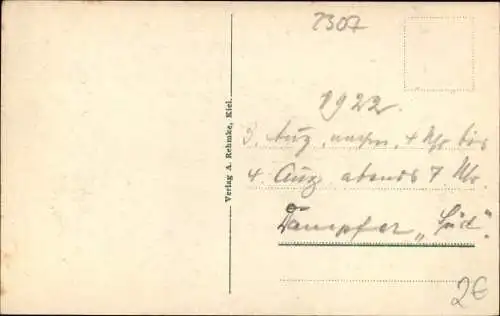 2307
1922.
3. Aug. nachm. 4 Uhr bis
4. Aug abends 7 Uhr.
Dampfer „Süd".
Verlag A. Rehmke, Kiel.
2€